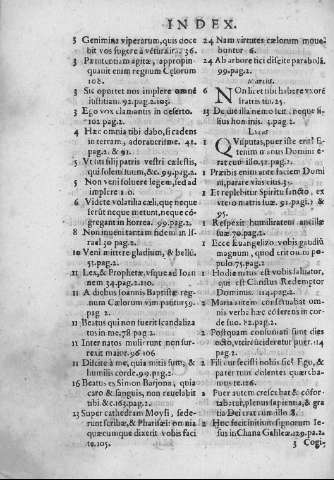 INDEX.
3 Genimina viperarum, quis doce
bit vos fugere à vētura ira 36.
3 Pœnitentiam agite, appropin-
quauit enim regnum Cęlorum
108.
3 Sic oportet nos implere omnē
iustitiam. 92. pag. 2. 103.
3 Ego vox clamantis in deserto.
102. pag. 2.
4 Hæc omnia tibi dabo, si cadens
in terram, adoraueris me. 42.
pag. 2. & 92.
5 Vt sitis filij patris vestri cælestis,
qui solem suum, &c. 99. pag. 2.
5 Non veni soluere legem, sed ad
implere
6 Videte volatilia cæli, quę neque
serūt neque metunt, neque cō-
gregant in horrea. 99. pag. 2.
8 Non inueni tantam fidem in Is-
rael 30 pag. 2.
10 Veni mittere gladium, & bellū.
51. pag. 2.
11 Lex, & Prophetæ, vsque ad Ioan
nem 34. pag. 2. 110.
11 A diebus Ioannis Baptistæ reg-
num Cælorum vim patitur 59
pag. 2.
11 Beatus qui non fuerit scandaliza
tus in me. 78 pag. 2.
11 Inter natos mulierum non sur-
rexit maior. 96 106
11 Discite à me, quia mitis sum, &
humilis corde. 99. pag. 2.
16 Beatus es Simon Barjona, quia
caro & sanguis, non reuelabit
tibi &c. 163. pag. 2.
23 Super cathedram Moysi, sede-
runt scribæ, & Pharisæi: omnia
quæcunque dixerit vobis faci
te. 105.
24 Nam virtutes cælorum moue
buntur 6.
24 Ab arbore fici discite parabolā.
99. pag. 2.
Marcus.
6 Non licet tibi habere vxorē
fratris tui. 25.
13 De die illa nemo scit: neque fi-
lius hominis. 3. pag. 2.
Lucas
1 Quis putas, puer iste erit? si-
tenim manus Domini e-
rat cum illo. 51. pag. 2.
1 Præibis enim ante faciem Domi
ni, parare vias eius. 35.
1 Et replebitur Spiritu sancto, ex
vtero matris suæ. 91. pag. 2 &
95.
1 Respexit humilitatem ancillæ
suæ. 70. pag. 2.
1 Ecce Euangelizo vobis gaudiū
magnum, quod erit omni po-
pulo. 75. pag. 2.
Hodie natus est vobis saluator,
qui est Christus Redemptor
Dominus 114. pag. 2.
2 Maria autem conseruabat om-
nia verba hæc cōferens in cor-
de suo. 72. pag. 2.
2 Postquam consumati sunt dies
octo, vt circūcideretur puer. 114
pag. 2.
2 Fili cur fecisti nobis sic? Ego, &
pater tuus dolentes quærēba-
mus te. 126.
2 Puer autem crescebat & cōfor-
tabatur, plenus sapientia, & gra
tia Dei erat cum illo 8.
2 Hoc fecit initium signorum Ie-
sus in Chana Galileæ. 129. pa. 2.
3 Cogi-